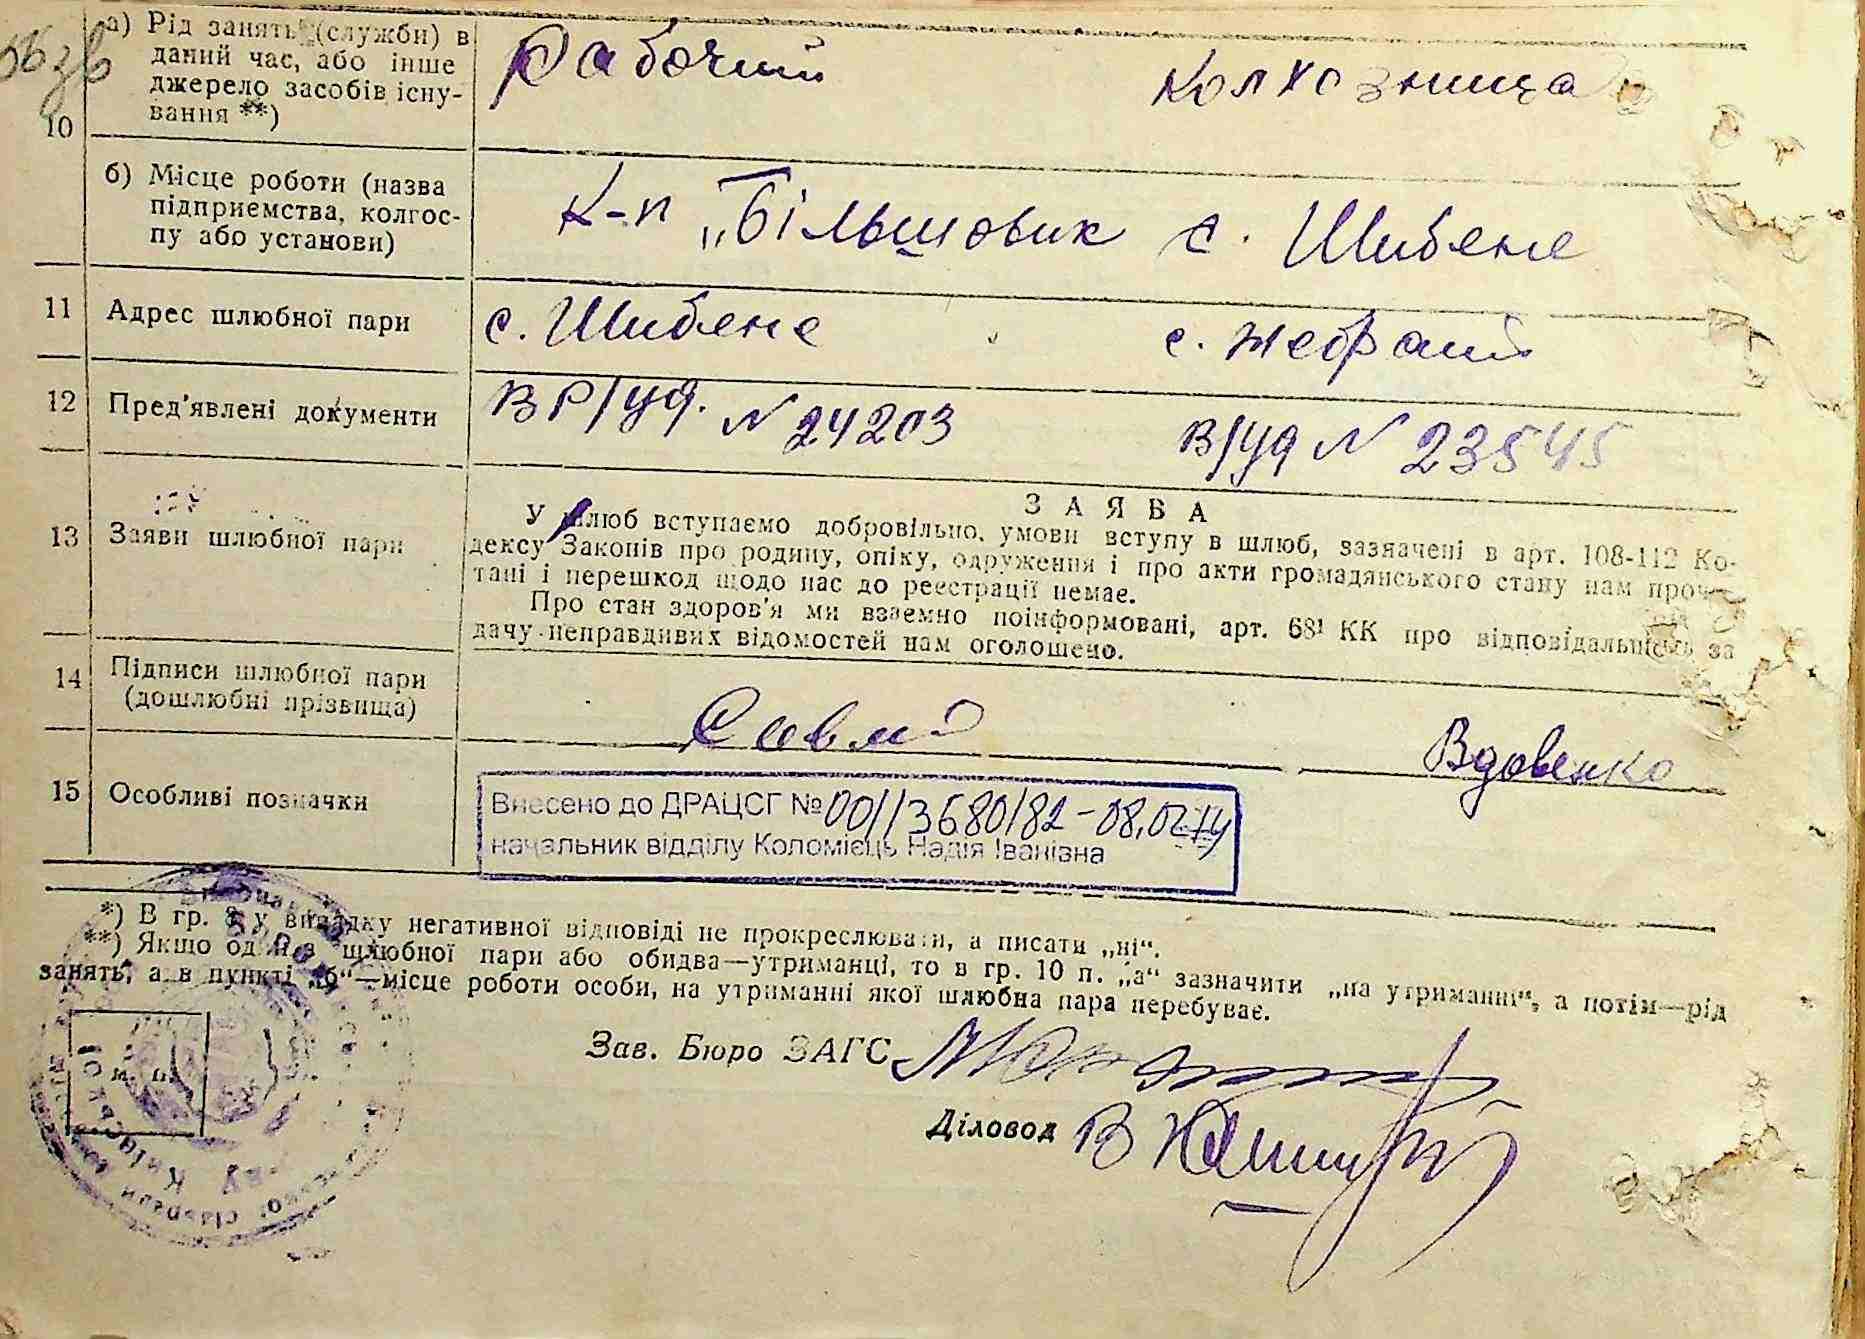 а) Рід занять (служби) в
даний час, або інше
джерело засобів існу-
вання **)
10
Рабочий
Колхозница
б) Місце роботи (назва
підприємства, колгос-
пу або установи)
К-п „Більшовик с. Шибене
11 Адрес шлюбної пари
с. Шибене
с. Жебраий
12 Пред'явлені документи
ВР/уд. N 24203
В/уд N 23545
13 Заяви шлюбної пари
ЗАЯВА
У шлюб вступаємо добровільно, умови вступу в шлюб, зазначені в арт. 108-112 Ко-
дексу Законів про родину, опіку, одруження і про акти громадянського стану нам прочи-
тані і перешкод щодо нас до реєстрації немає.
Про стан здоров'я ми взаємно поінформовані, арт. 68¹ КК про відповідальність за
дачу неправдивих відомостей нам оголошено.
14 Підписи шлюбної пари
(дошлюбні прізвища)
Вдовенко
15 Особливі позначки
Внесено до ДРАЦСГ № 00113680182-08.02.
начальник відділу Коломієць Надія Іванівна
*) В гр. 8 у випадку негативної відповіді не прокреслювати, а писати „ні“.
**) Якщо один з шлюбної пари або обидва—утриманці, то в гр. 10 п. „а“ зазначити „на утриманні“, а потім—рід
занять, а в пункті „б“—місце роботи особи, на утриманні якої шлюбна пара перебуває.
Зав. Бюро ЗАГС
Діловод
м. п.